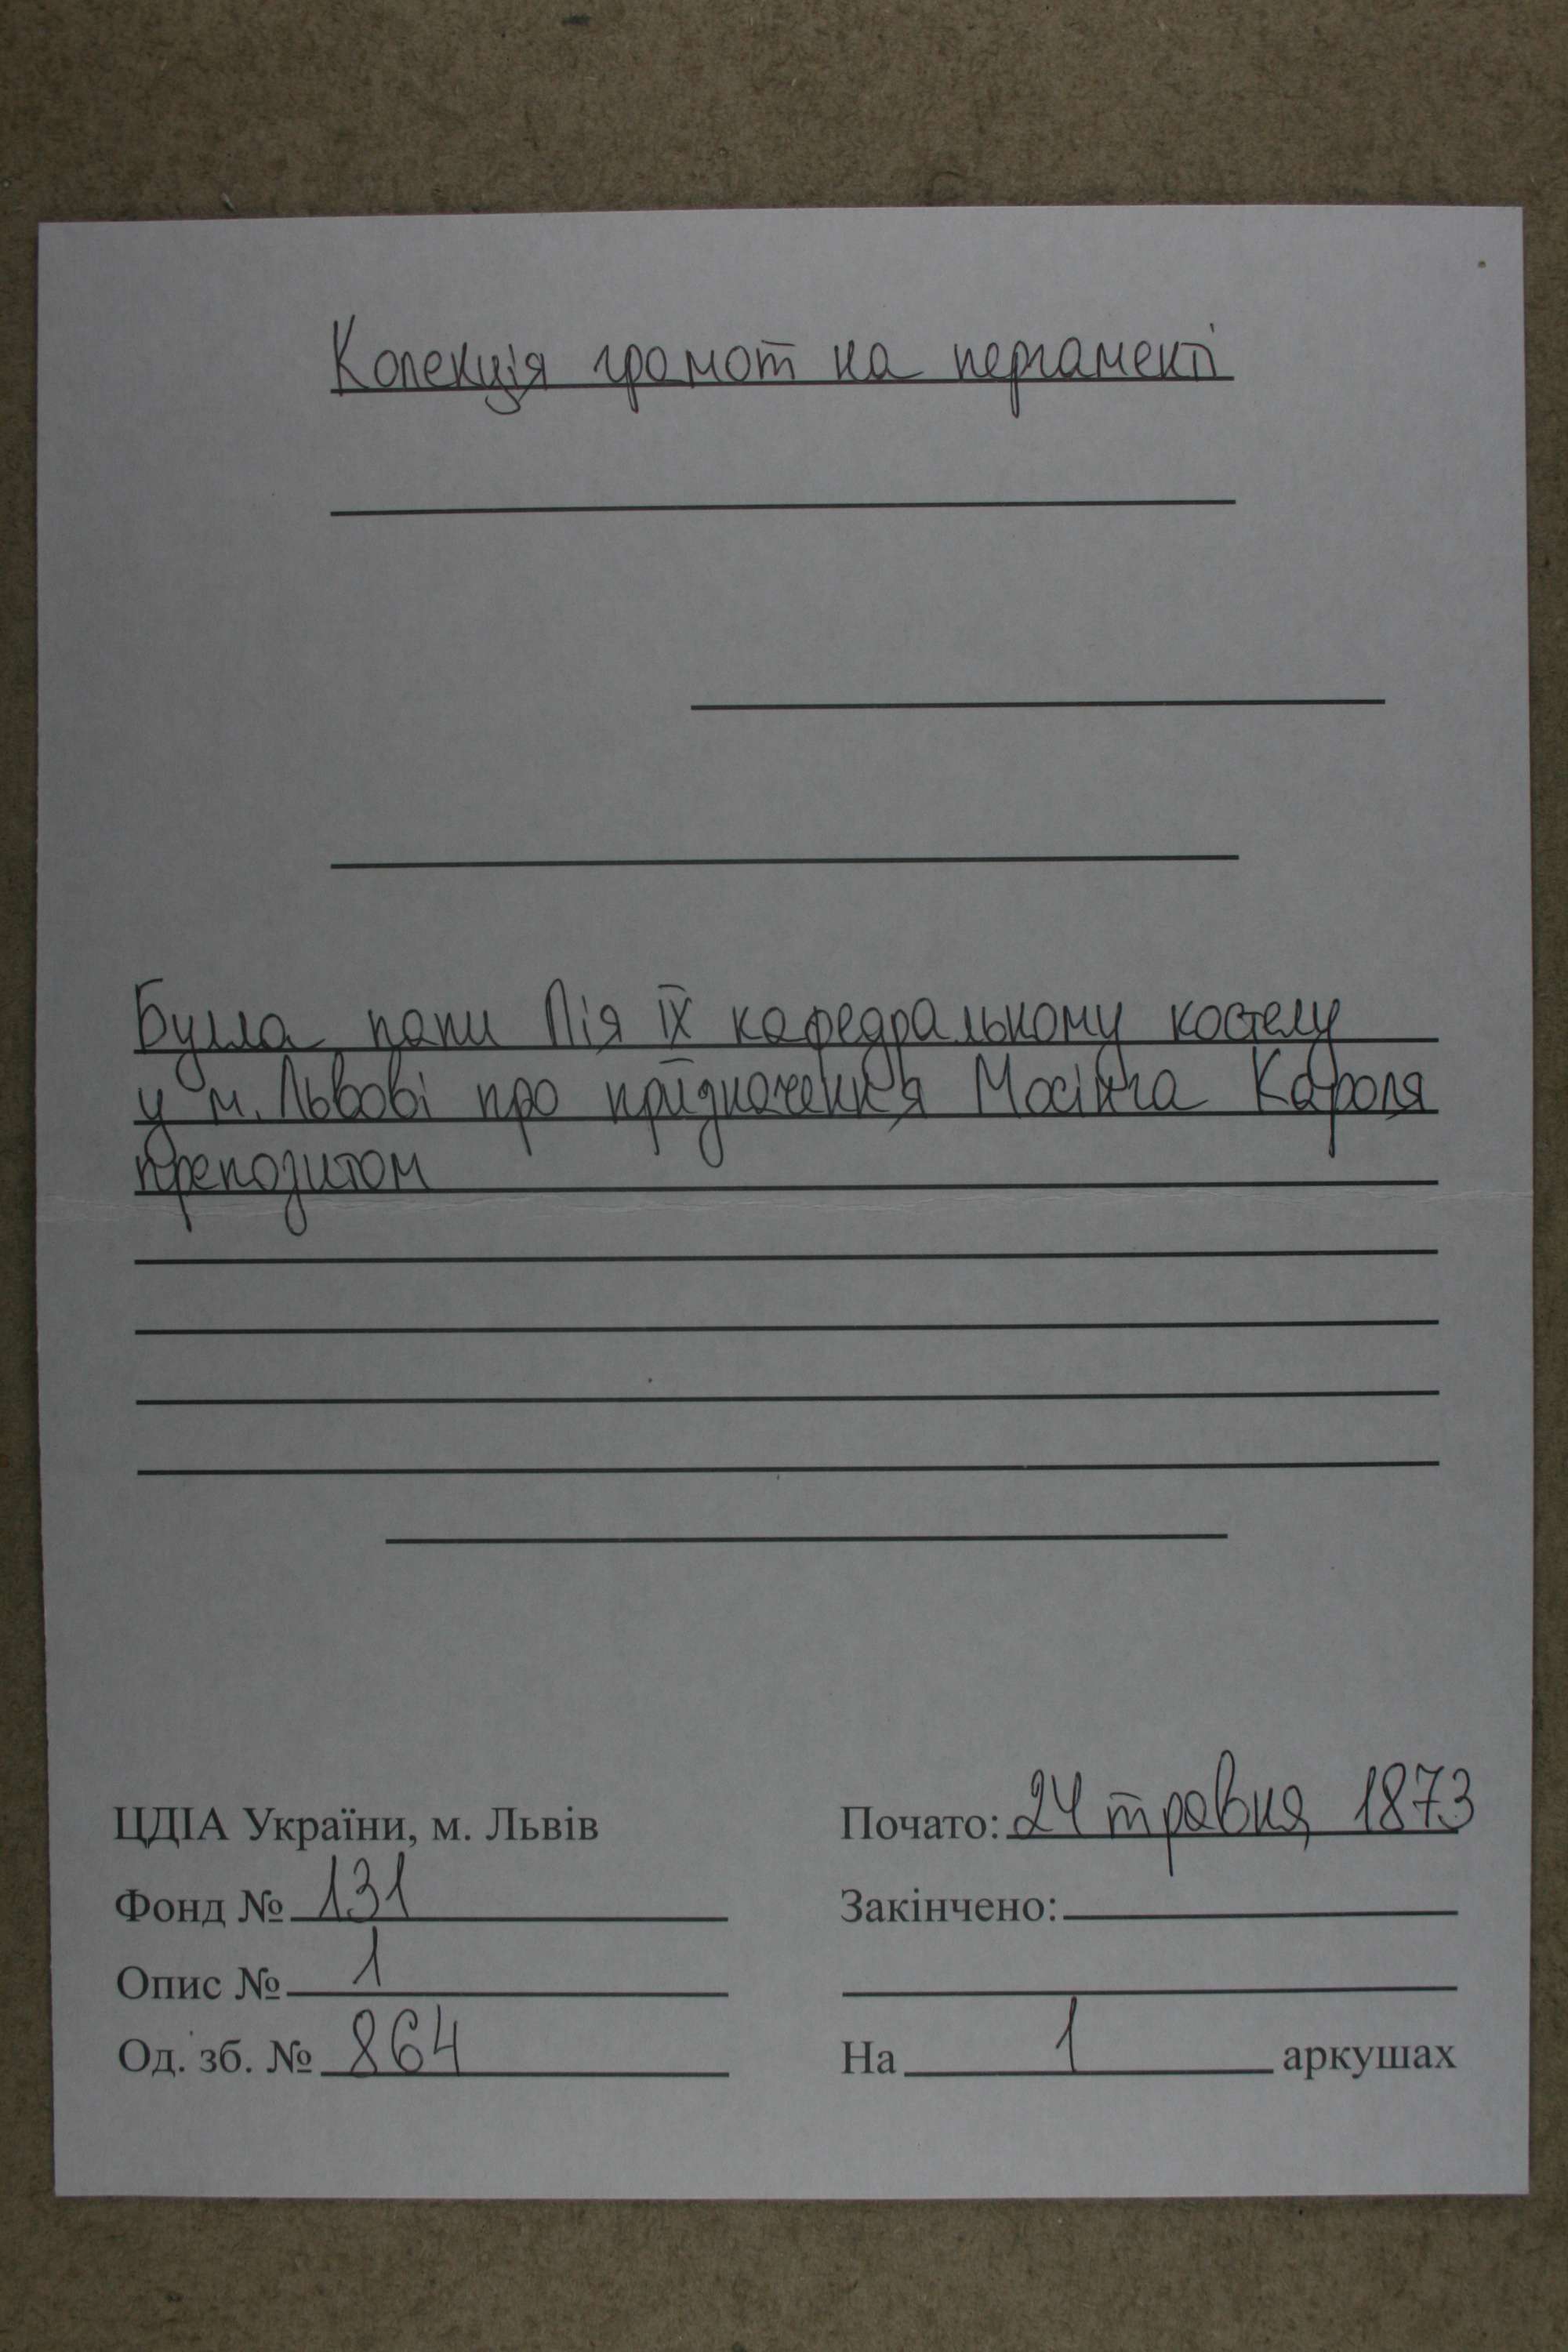 Колекція грамот на пергаменті
Булла папи Пія ІХ кафедральному костелу
у м. Львові про призначення Мосінга Кароля
препозитом
ЦДІА України, м. Львів
Фонд № 131
Опис № 1
Од. зб. № 864
Почато: 24 травня 1873
Закінчено:
На 1 аркушах